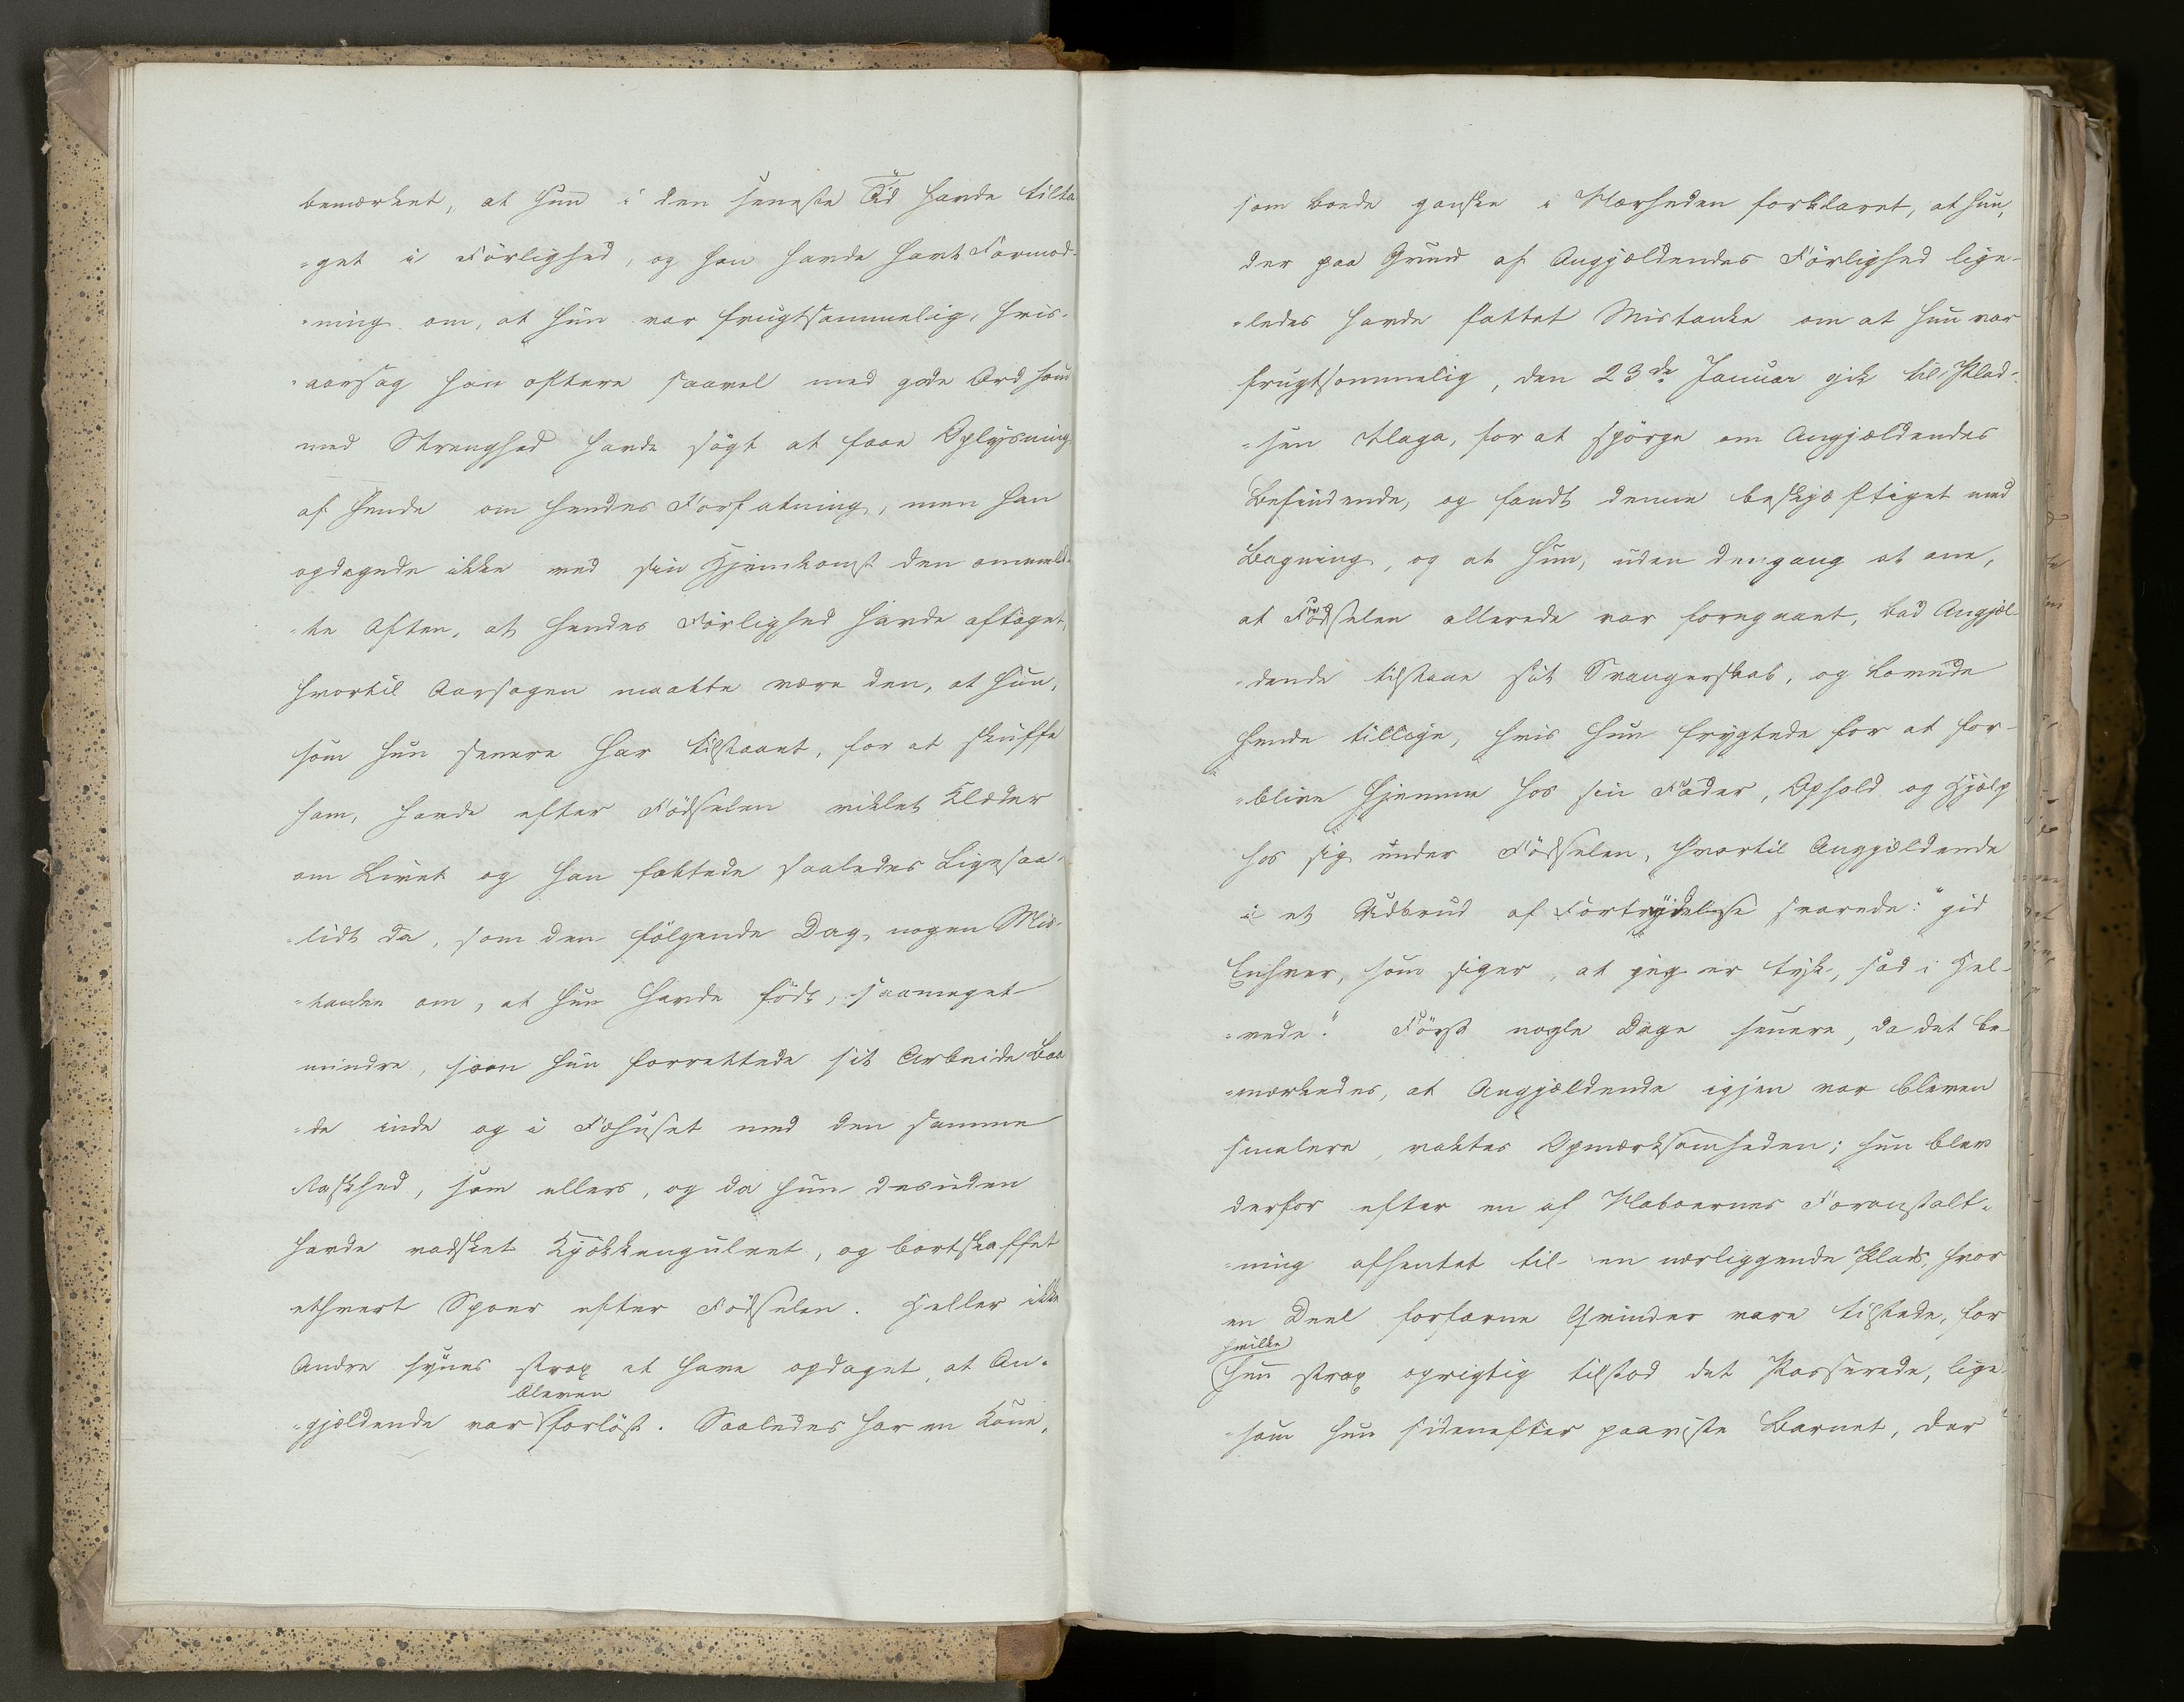 bemærket, at hun i den seneste Tid havde tilta
-get i Förlighed, og han havde havt Formod-
-ning om, at hun var frugtsommelig, hvis-
-aarsag han oftere saavel med gode Ord som
med Strenghed havde sögt at faae Oplysning
af hende om hendes Forfatning, men han
opdagede ikke ved sin Hjemkomst den ommeld-
-te Aften, at hendes Förlighed havde aftaget,
hvortil Aarsagen maatte være den, at hun,
som hun senere har tilstaaet, for at skuffe
ham, havde efter Födselen viklet Klæder
om Livet og han fattede saaledes Ligesaa-
-lidt da, som den fölgende Dag, nogen Mis-
-tanke om, at hun havde födt, saameget
mindre, som hun forrettede sit Arbeide Baa
-de inde og i Fæhuset med den samme
Raskhed, som ellers, og da hun desuden
havde vadsket Kjökkengulvet, og bortskaffet
ethvert Spoer efter Födselen. Heller ikke
Andre synes strax at have opdaget, at An-
bleven
-gjældende var forlöst. Saaledes har en Kone,
som boede ganske i Nærheden forklaret, at hun,
der paa Grund af Angjældendes Förlighed lige-
-ledes havde fattet Mistanke om at hun var
frugtsommelig, den 23de Januar gik til Plad-
-sen Haga, for at spörge om Angjældendes
Befindende, og fandt denne beskjæftiget med
Bagning, og at hun, uden dengang at ane,
at Födselen allerede var foregaaet, bad Angjæl-
-dende tilstaae sit Svangerskab, og lovede
hende tillige, hvis hun frygtede for at for-
-blive hjemme hos sin Fader, Ophold og Hjælp
hos sig under Födselen, hvortil Angjældende
i et Udbrud af Fortrydelse svarede: "gid
Enhver, som siger, at jeg er tyk, sad i Hel-
-vede". Först nogle Dage senere, da det be-
-mærkedes, at Angjældende igjen var bleven
smalere, vaktes Opmærksomheden; hun blev
derfor efter en af Naboernes Foranstalt-
-ning afhentet til en nærliggende Plads, hvor
en Deel forfarne Qvinder vare tilstede, for
hvilke
hun strax oprigtig tilstod det Passerede, lige-
-som hun sidenefter paaviste Barnet, der